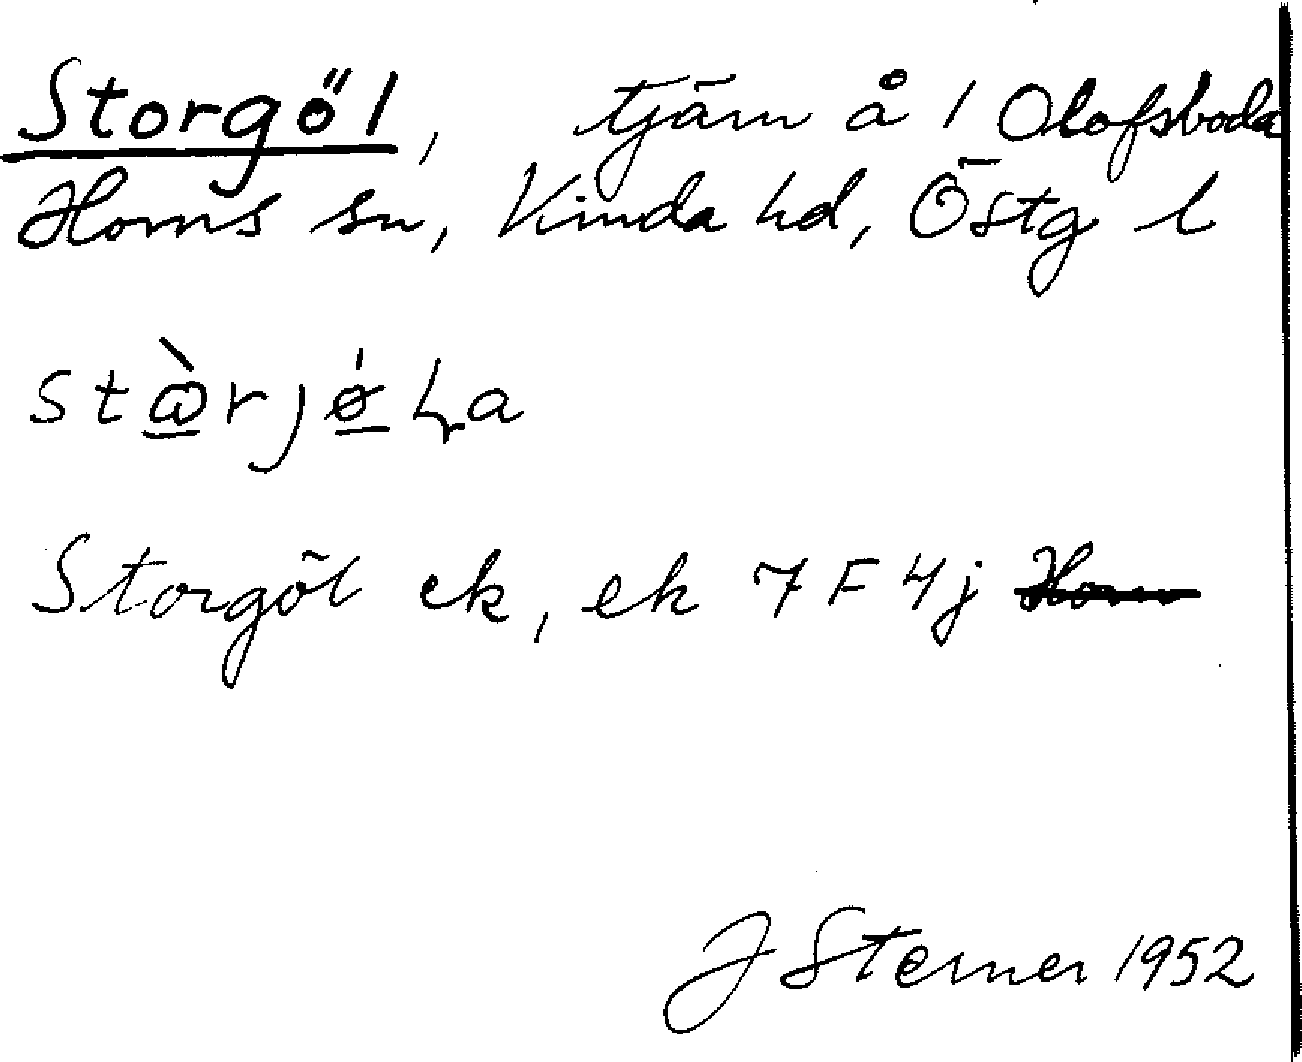 Storgöl, tjärn å 1 Olofsboda
Horns sn, Kinda hd, Östg l
Storgöl ek, ek 7F4j Horn
J Sterner 1952